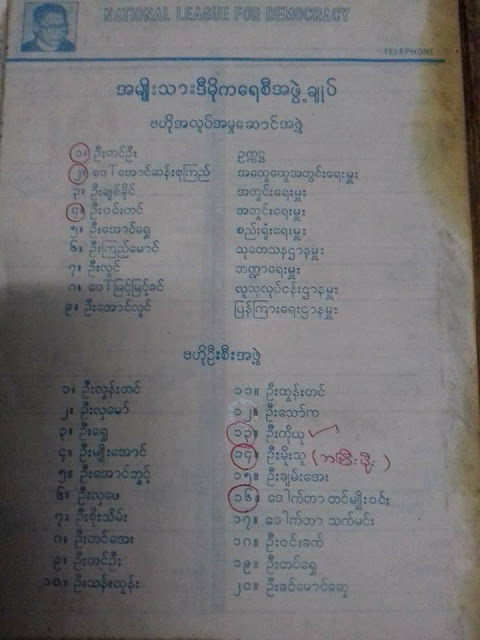 NATIONAL LEAGUE FOR DEMOCRACY
TELEPHONE
အမျိုးသားဒီမိုကရေစီအဖွဲ့ချုပ်
ဗဟိုအလုပ်အမှုဆောင်အဖွဲ့
၁။ ဦးတင်ဦး ဥက္ကဋ္ဌ
၂။ ဒေါ်အောင်ဆန်းစုကြည် အထွေထွေအတွင်းရေးမှူး
၃။ ဦးချစ်ခိုင် အတွင်းရေးမှူး
၄။ ဦးဝင်းတင် အတွင်းရေးမှူး
၅။ ဦးအောင်ရွှေ စည်းရုံးရေးမှူး
၆။ ဦးကြည်မောင် သုတေသနဌာနမှူး
၇။ ဦးလွင် ဘဏ္ဍာရေးမှူး
၈။ ဒေါ်မြင့်မြင့်ခင် လူသုလုပ်ငန်းဌာနမှူး
၉။ ဦးအောင်လွင် ပြန်ကြားရေးဌာနမှူး
ဗဟိုဦးစီးအဖွဲ့
၁။ ဦးလွန်းတင် ၁၁။ ဦးထွန်းတင်
၂။ ဦးလှမော် ၁၂။ ဦးသော်က
၃။ ဦးရွှေ ၁၃။ ဦးကိုယု
၄။ ဦးမျိုးအောင် ၁၄။ ဦးမိုးသူ
၅။ ဦးအောင်ဘွင့် ၁၅။ ဦးချမ်းအေး
၆။ ဦးလှဖေ ၁၆။ ဒေါက်တာ တင်မျိုးဝင်း
၇။ ဦးစိုးသိမ်း ၁၇။ ဒေါက်တာ သက်မင်း
၈။ ဦးတင်အေး ၁၈။ ဦးဝင်းခက်
၉။ ဦးတင်ဦး ၁၉။ ဦးတင်ရွှေ
၁၀။ ဦးသန်းထွန်း ၂၀။ ဦးခင်မောင်ဆွေ